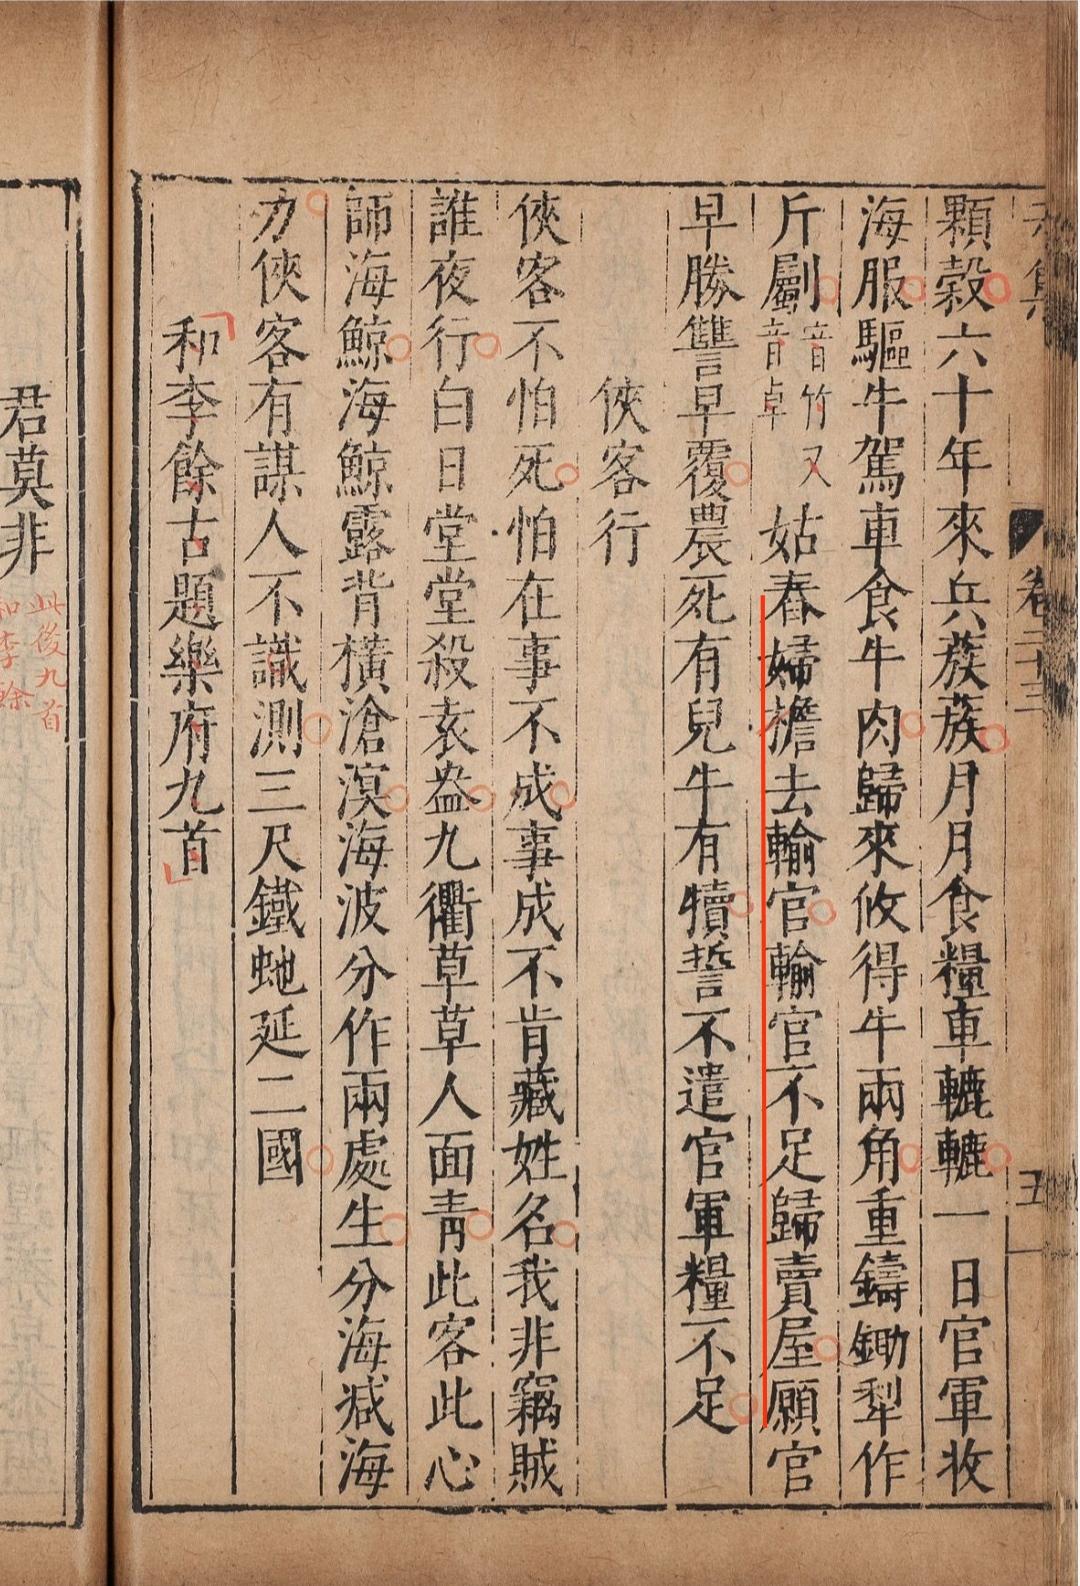 集 卷二十三 五
顆穀六十年來兵蔟蔟月月食糧車轆轆一日官軍收
海服驅牛駕車食牛肉歸來攸得牛兩角重鑄鋤犁作
斤劚音竹又音卓姑舂婦檐去輸官輸官不足歸賣屋願官
早勝讐早覆農死有兒牛有犢誓不遣官軍糧不足
俠客行
俠客不怕死怕在事不成事成不肯藏姓名我非竊賊
誰夜行白日堂堂殺袁盎九衢草草人面青此客此心
師海鯨海鯨露背橫滄溟海波分作兩處生分海減海
力俠客有謀人不識測三尺鐵虵延二國
和李餘古題樂府九首
君莫非
此後九首
和李餘